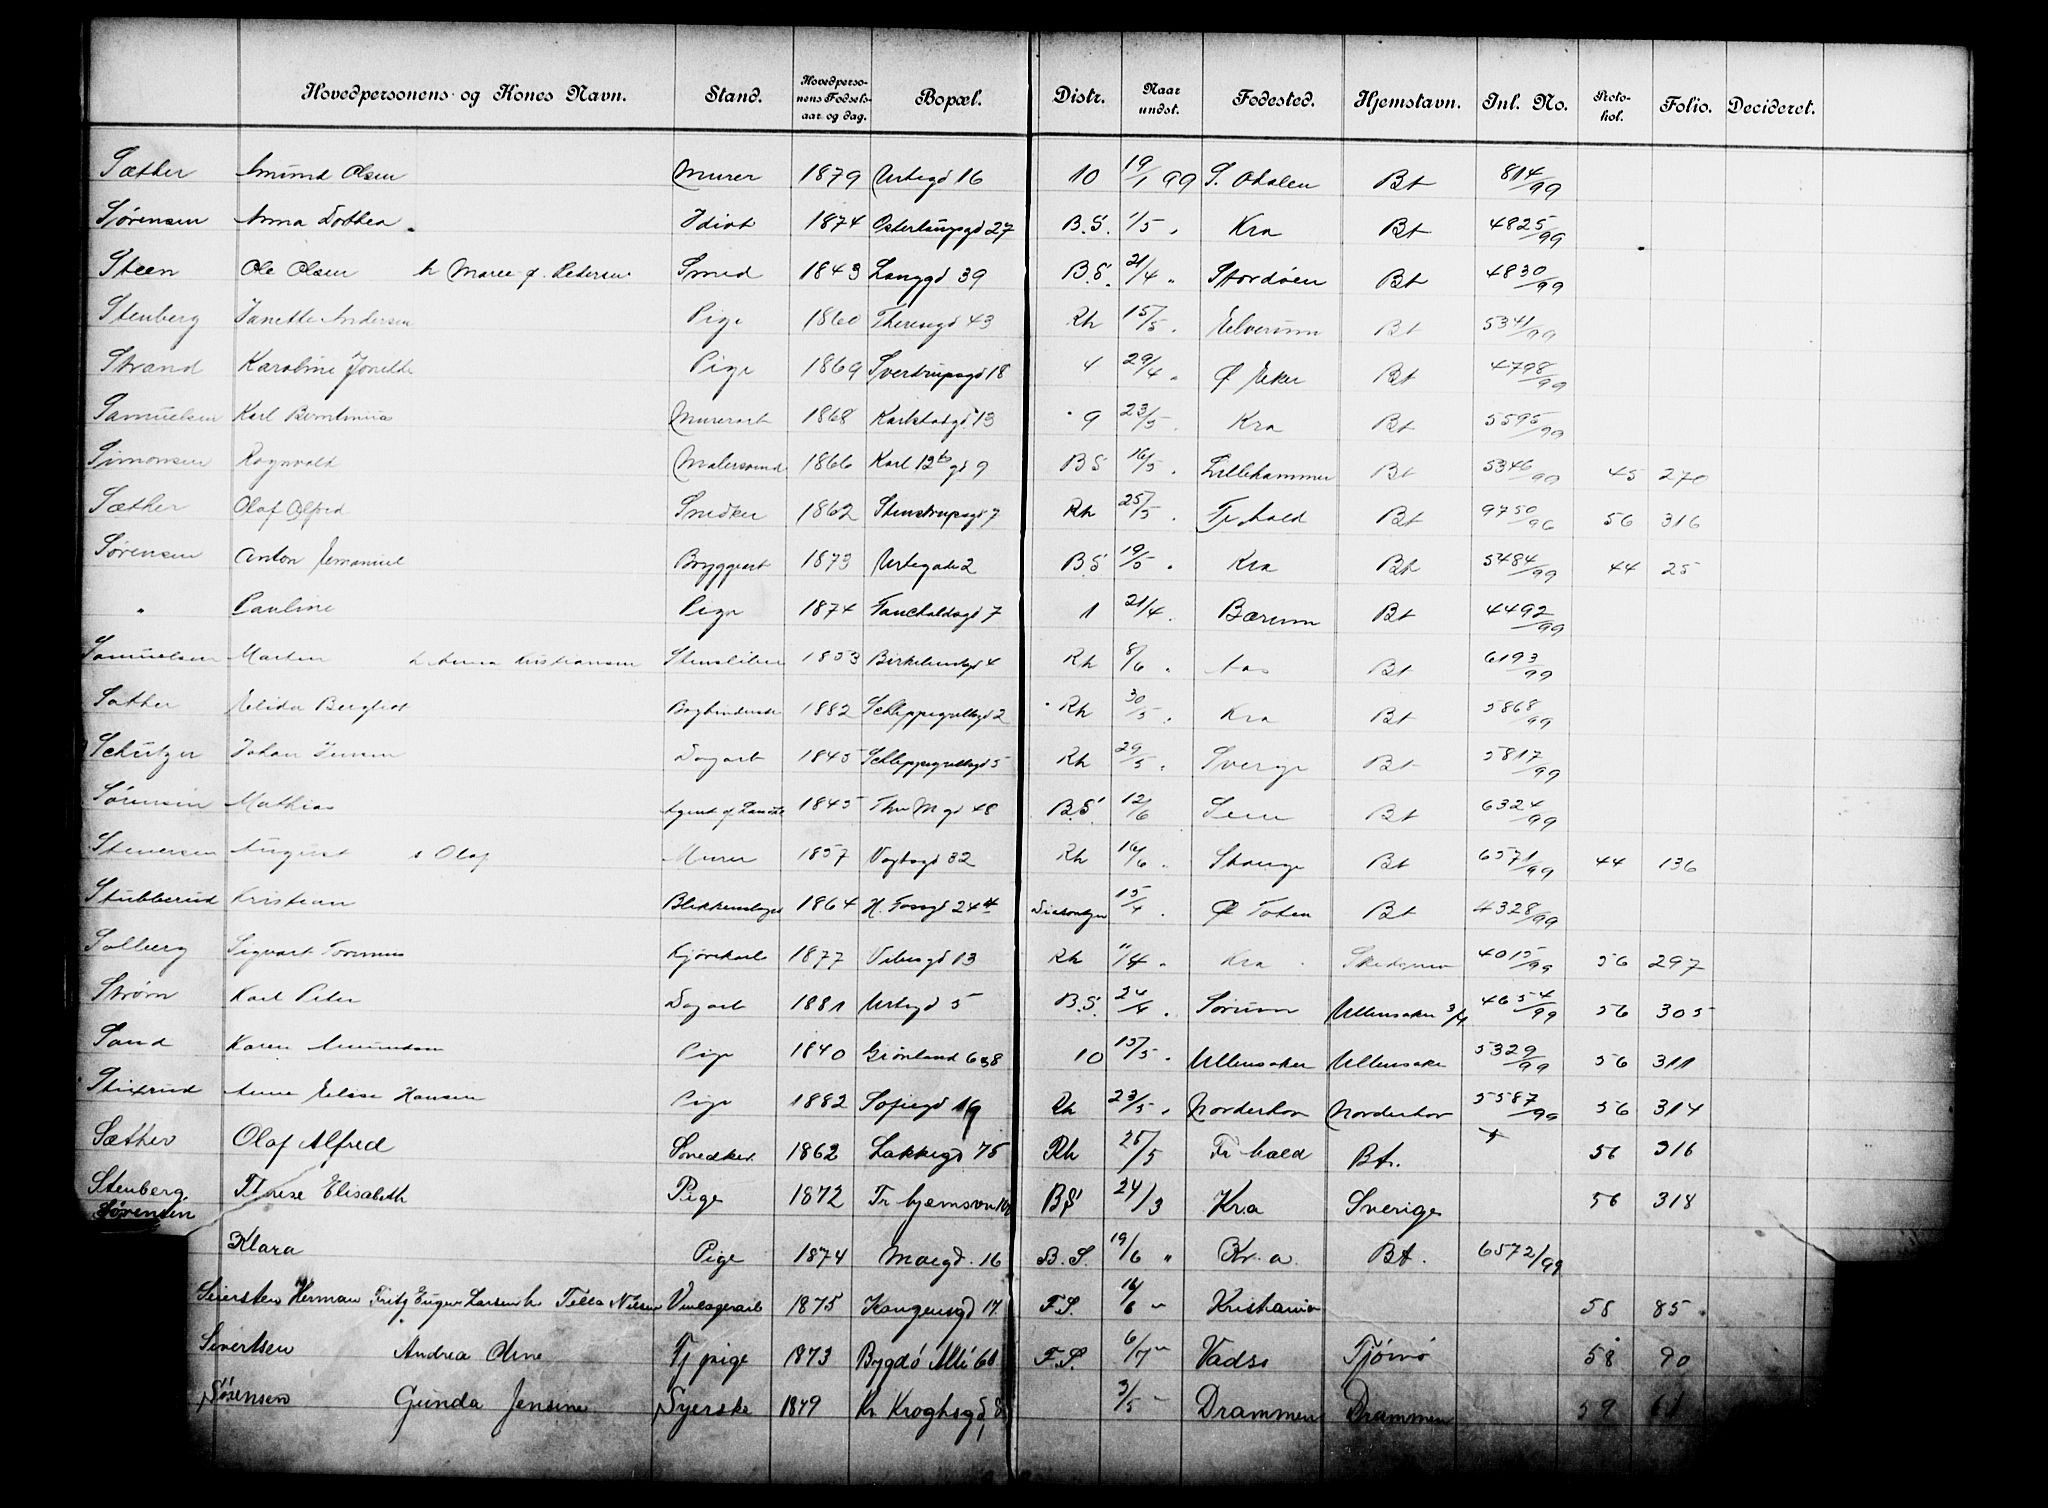 Hovedpersonens og Kones Navn. Stand. Hovedpersonens Fødselsaar og dag. Bopæl. Distr. Naar undst. Fødested. Hjemstavn. Inl. No. Protokol. Folio. Decideret.
Sæther Amund Olsen Murer 1879 Urtegd 16 10 19/1 99 S. Odalen Bt 814/99
Sørensen Anna Dothea Idiot 1874 27 B.S. 1/5 " Kra Bt 4825/99
Steen Ole Olsen h Maree f. Pedersen Smed 1843 Langgd 39 B.S. 21/4 " Stordøen Bt 4830/99
Stenberg Janette Andersen Pige 1860 Theresegd 43 Rh 15/5 " Elverum Bt 5341/99
Strand Karoline Jonette Pige 1869 Sverdrupsgd 18 4 29/4 " Ø Eker Bt 4798/99
Samuelsen Karl Murerarb 1868 Karlstadgd 13 9 23/5 " Kra Bt 5595/99
Simonsen Ragnvald Malersvend 1866 Karl 12ts gd 9 BS 16/5 " Lillehammer Bt 5346/99 45 270
Sæther Olaf Alfred Snedker 1862 Stenstrupsgd 7 Rh 25/5 " Fr.hald Bt 9750/96 56 316
Sørensen Anton Emanuel Bryggearb 1873 Urtegade 2 B.S 19/5 " Kra Bt 5484/99 44 25
" Pauline Pige 1874 Fauchaldsgd 7 1 21/4 " Bærum Bt 4492/99
Samuelsen Martin h Anna Kristiansen 1853 Birkelundgd 4 Rh 8/6 " Aas Bt 6193/99
Sæther Elida Bergliot 1882 Schleppegrellsgd 2 Rh 30/5 " Kra Bt 5868/99
Schutzer Johan Jensen Dagarb 1845 Schleppegrellsgd 5 Rh 29/5 " Sverge Bt 5817/99
Sørensen Mathias 1845 Thv M gd 48 B.S. 12/6 Sem Bt 6324/99
Stenersen August s Olaf Murer 1857 Vogtsgd 32 Rh 16/6 " Stange Bt 6571/99 44 136
Stubberud Kristian Blikkenslager 1864 H. Fossgd 24 15/4 " Ø Toten Bt 4328/99
Solberg Sigvart Kjørekarl 1877 Vibesgd 13 Rh 11/4 " Kra Skedsmo 4015/99 56 297
Strøm Karl Peter Dagarb 1881 Urtegd 5 B.S. 24/4 " Sørum Ullensaker 3/4 4654/99 56 305
Sand Karen Amundsen Pige 1840 Grønland 6 38 10 15/5 " Ullensaker Ullensaker 5329/99 56 311
Stixrud Anna Elise Hansen Pige 1882 Sofiegd 19 Rh 23/5 " Norderhov Norderhov 5587/99 56 314
Sæther Olaf Alfred Snedker 1862 Lakkegd 75 Rh 25/5 Fr hald Bt. 56 316
Stenberg. Therese Elisabeth Pige 1872 Tr hjemsvn BS 24/3 Kra Sverige 56 318
Sørensen
Klara Pige 1874 Maigd. 16 B. S. 19/6 " Kr. a. Bt. 6572/99
Seiersten Herman Fritz Eugen Larsen h Tella Nilsen Vinlagerarb 1875 Kongensgd 17. F.S. 16/6 " Kristiania 58 85
Sivertsen Andrea Oline Tj pige 1873 Bygdø Alle 60 F.S. 6/7 " Vadsø Tjømø 58 90
Sørensen Gunda Jensine Syerske 1849 Kr Kroghsgd 3/5 " Drammen Drammen 59 61